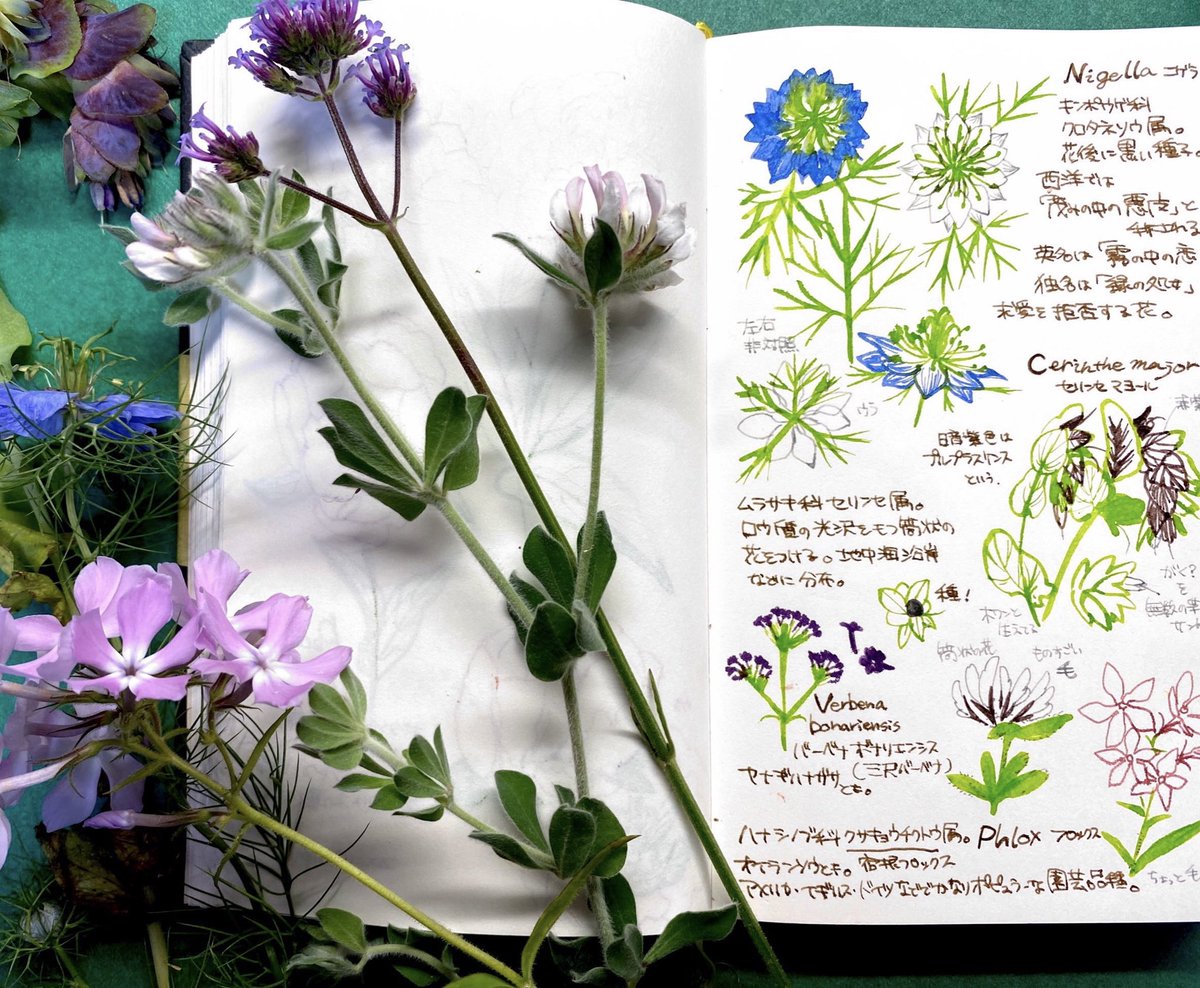 Nigella ニゲラ
キンポウゲ科
クロタネソウ属。
花後に黒い種子。
西洋では
「茂みの中の悪魔」と
英名は「霧の中の恋
独名は「緑の処女」
求愛を拒否する花。
左右
非対照
Cerinthe major
セリンセ マヨール
赤紫
暗紫色は
プルプラスリンス
という。
ムラサキ科セリンセ属。
ロウ質の光沢をもつ筒状の
花をつける。地中海沿岸
などに分布。
種!
がく?
を
筒状の花
ものすごい
毛
Verbena
bonariensis
バーベナ ボナリエンシス
(三尺バーベナ)
ヤナギハナガサ
とも。
ハナシノブ科クサキョウチクトウ属。Phlox フロックス
オイランソウとも。宿根フロックス
アメリカ・イギリス・ドイツなどでかなりポピュラーな園芸品種。
ちょっと毛